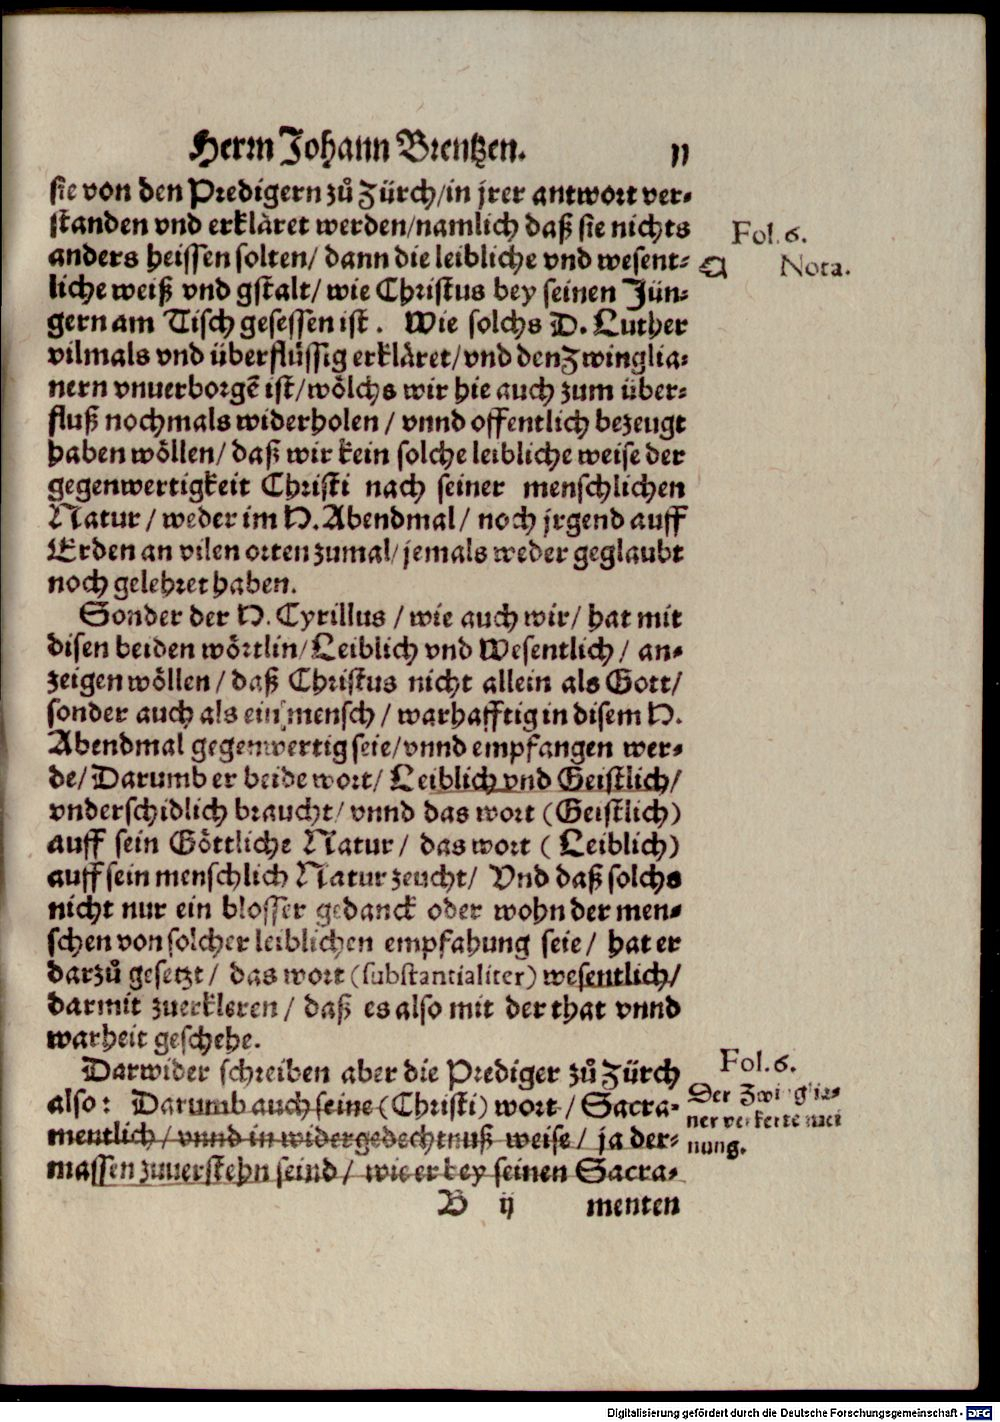 Herrn Johann Brentzen. 11
sie von den Predigern zů Zürch/in jrer antwort ver-
standen vnd erkläret werden/namlich daß sie nichts
anders heissen solten/ dann die leibliche vnd wesent-
liche weiß vnd gstalt/ wie Christus bey seinen Jün-
gern am Tisch gesessen ist. Wie solchs D. Luther
vilmals vnd überflüssig erkläret/vnd den Zwinglia-
nern vnuerborgē ist/wölchs wir hie auch zum über-
fluß nochmals widerholen/ vnnd offentlich bezeugt
haben wöllen/ daß wir kein solche leibliche weise der
gegenwertigkeit Christi nach seiner menschlichen
Natur/ weder im H. Abendmal/ noch jrgend auff
Erden an vilen orten zumal/jemals weder geglaubt
noch gelehret haben.
Sonder der H. Cyrillus/ wie auch wir/ hat mit
disen beiden wörtlin/Leiblich vnd Wesentlich/ an-
zeigen wöllen/ daß Christus nicht allein als Gott/
sonder auch als ein mensch/ warhafftig in disem H.
Abendmal gegenwertig seie/vnnd empfangen wer-
de/ Darumb er beide wort/ Leiblich vnd Geistlich/
vnderschidlich braucht/ vnnd das wort (Geistlich)
auff sein Göttliche Natur/ das wort (Leiblich)
auff sein menschlich Natur zeucht/ Vnd daß solchs
nicht nur ein blosser gedanck oder wohn der men-
schen von solcher leiblichen empfahung seie/ hat er
darzů gesetzt/ das wort (substantialiter) wesentlich/
darmit zuerkleren/ daß es also mit der that vnnd
warheit geschehe.
Darwider schreiben aber die Prediger zů Zürch
also: Darumb auch seine (Christi) wort/ Sacra-
mentlich/ vnnd in widergedechtnuß weise/ ja der-
massen zuuerstehn seind/ wie er bey seinen Sacra-
B ij menten
Fol. 6.
Nota.
Fol. 6.
Der Zwinglia-
ner verkerte mei
nung.
Digitalisierung gefördert durch die Deutsche Forschungsgemeinschaft - DFG